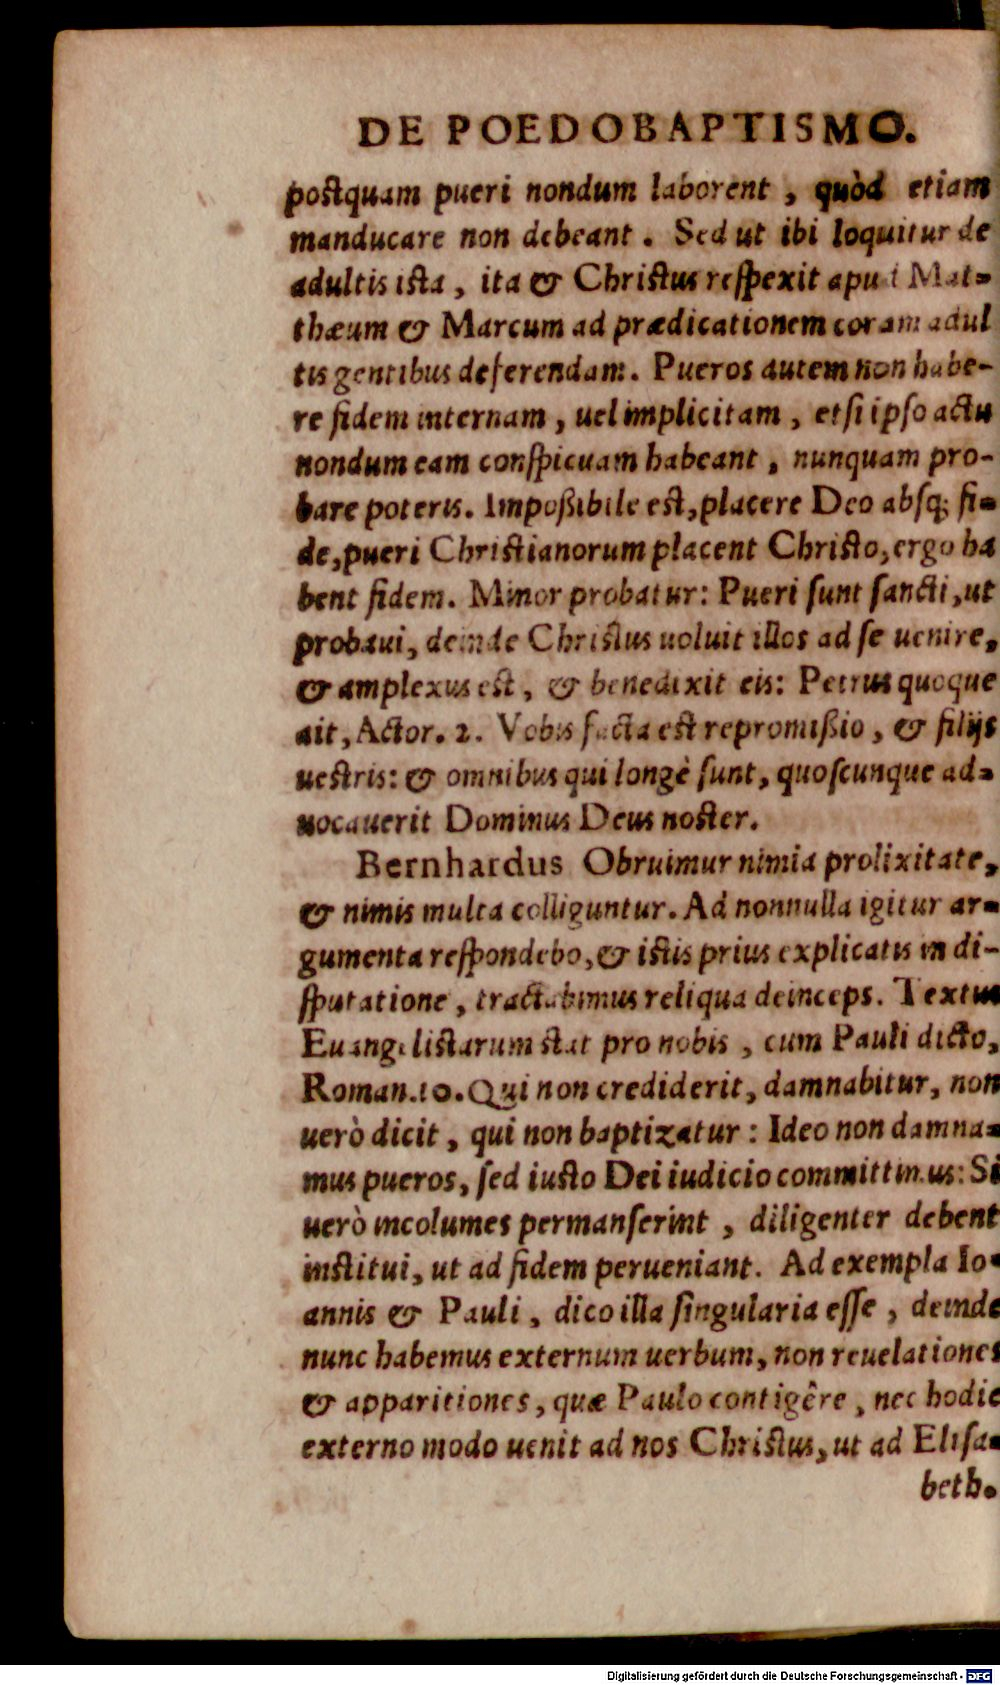 DE POEDOBAPTISMO.
postquam pueri nondum laborent, quòd etiam
manducare non debeant. Sed ut ibi loquitur de
adultis ista, ita & Christus respexit apud Mat-
thæum & Marcum ad prædicationem coram adul
tis gentibus deferendam. Pueros autem non habe-
re fidem internam, uel implicitam, etsi ipso actu
nondum eam conspicuam habeant, nunquam pro-
bare poteris. Impoßibile est, placere Deo absq; fi-
de, pueri Christianorum placent Christo, ergo ha
bent fidem. Minor probatur: Pueri sunt sancti, ut
probaui, deinde Christus uoluit illos ad se uenire,
& amplexus est, & benedixit eis: Petrus quoque
ait, Actor. 2. Vobis facta est repromißio, & filijs
uestris: & omnibus qui longè sunt, quoscunque ad-
uocauerit Dominus Deus noster.
Bernhardus Obruimur nimia prolixitate,
& nimis multa colliguntur. Ad nonnulla igitur ar-
gumenta respondebo, & istis prius explicatis in di-
sputatione, tractabimus reliqua deinceps. Textus
Euangelistarum stat pro nobis, cum Pauli dicto,
Roman.10. Qui non crediderit, damnabitur, non
uerò dicit, qui non baptizatur: Ideo non damna-
mus pueros, sed iusto Dei iudicio committimus: Si
uerò incolumes permanserint, diligenter debent
institui, ut ad fidem perueniant. Ad exempla Io-
annis & Pauli, dico illa singularia esse, deinde
nunc habemus externum uerbum, non reuelationes
& apparitiones, quæ Paulo contigêre, nec hodie
externo modo uenit ad nos Christus, ut ad Elisa-
beth.
Digitalisierung gefördert durch die Deutsche Forschungsgemeinschaft - DFG